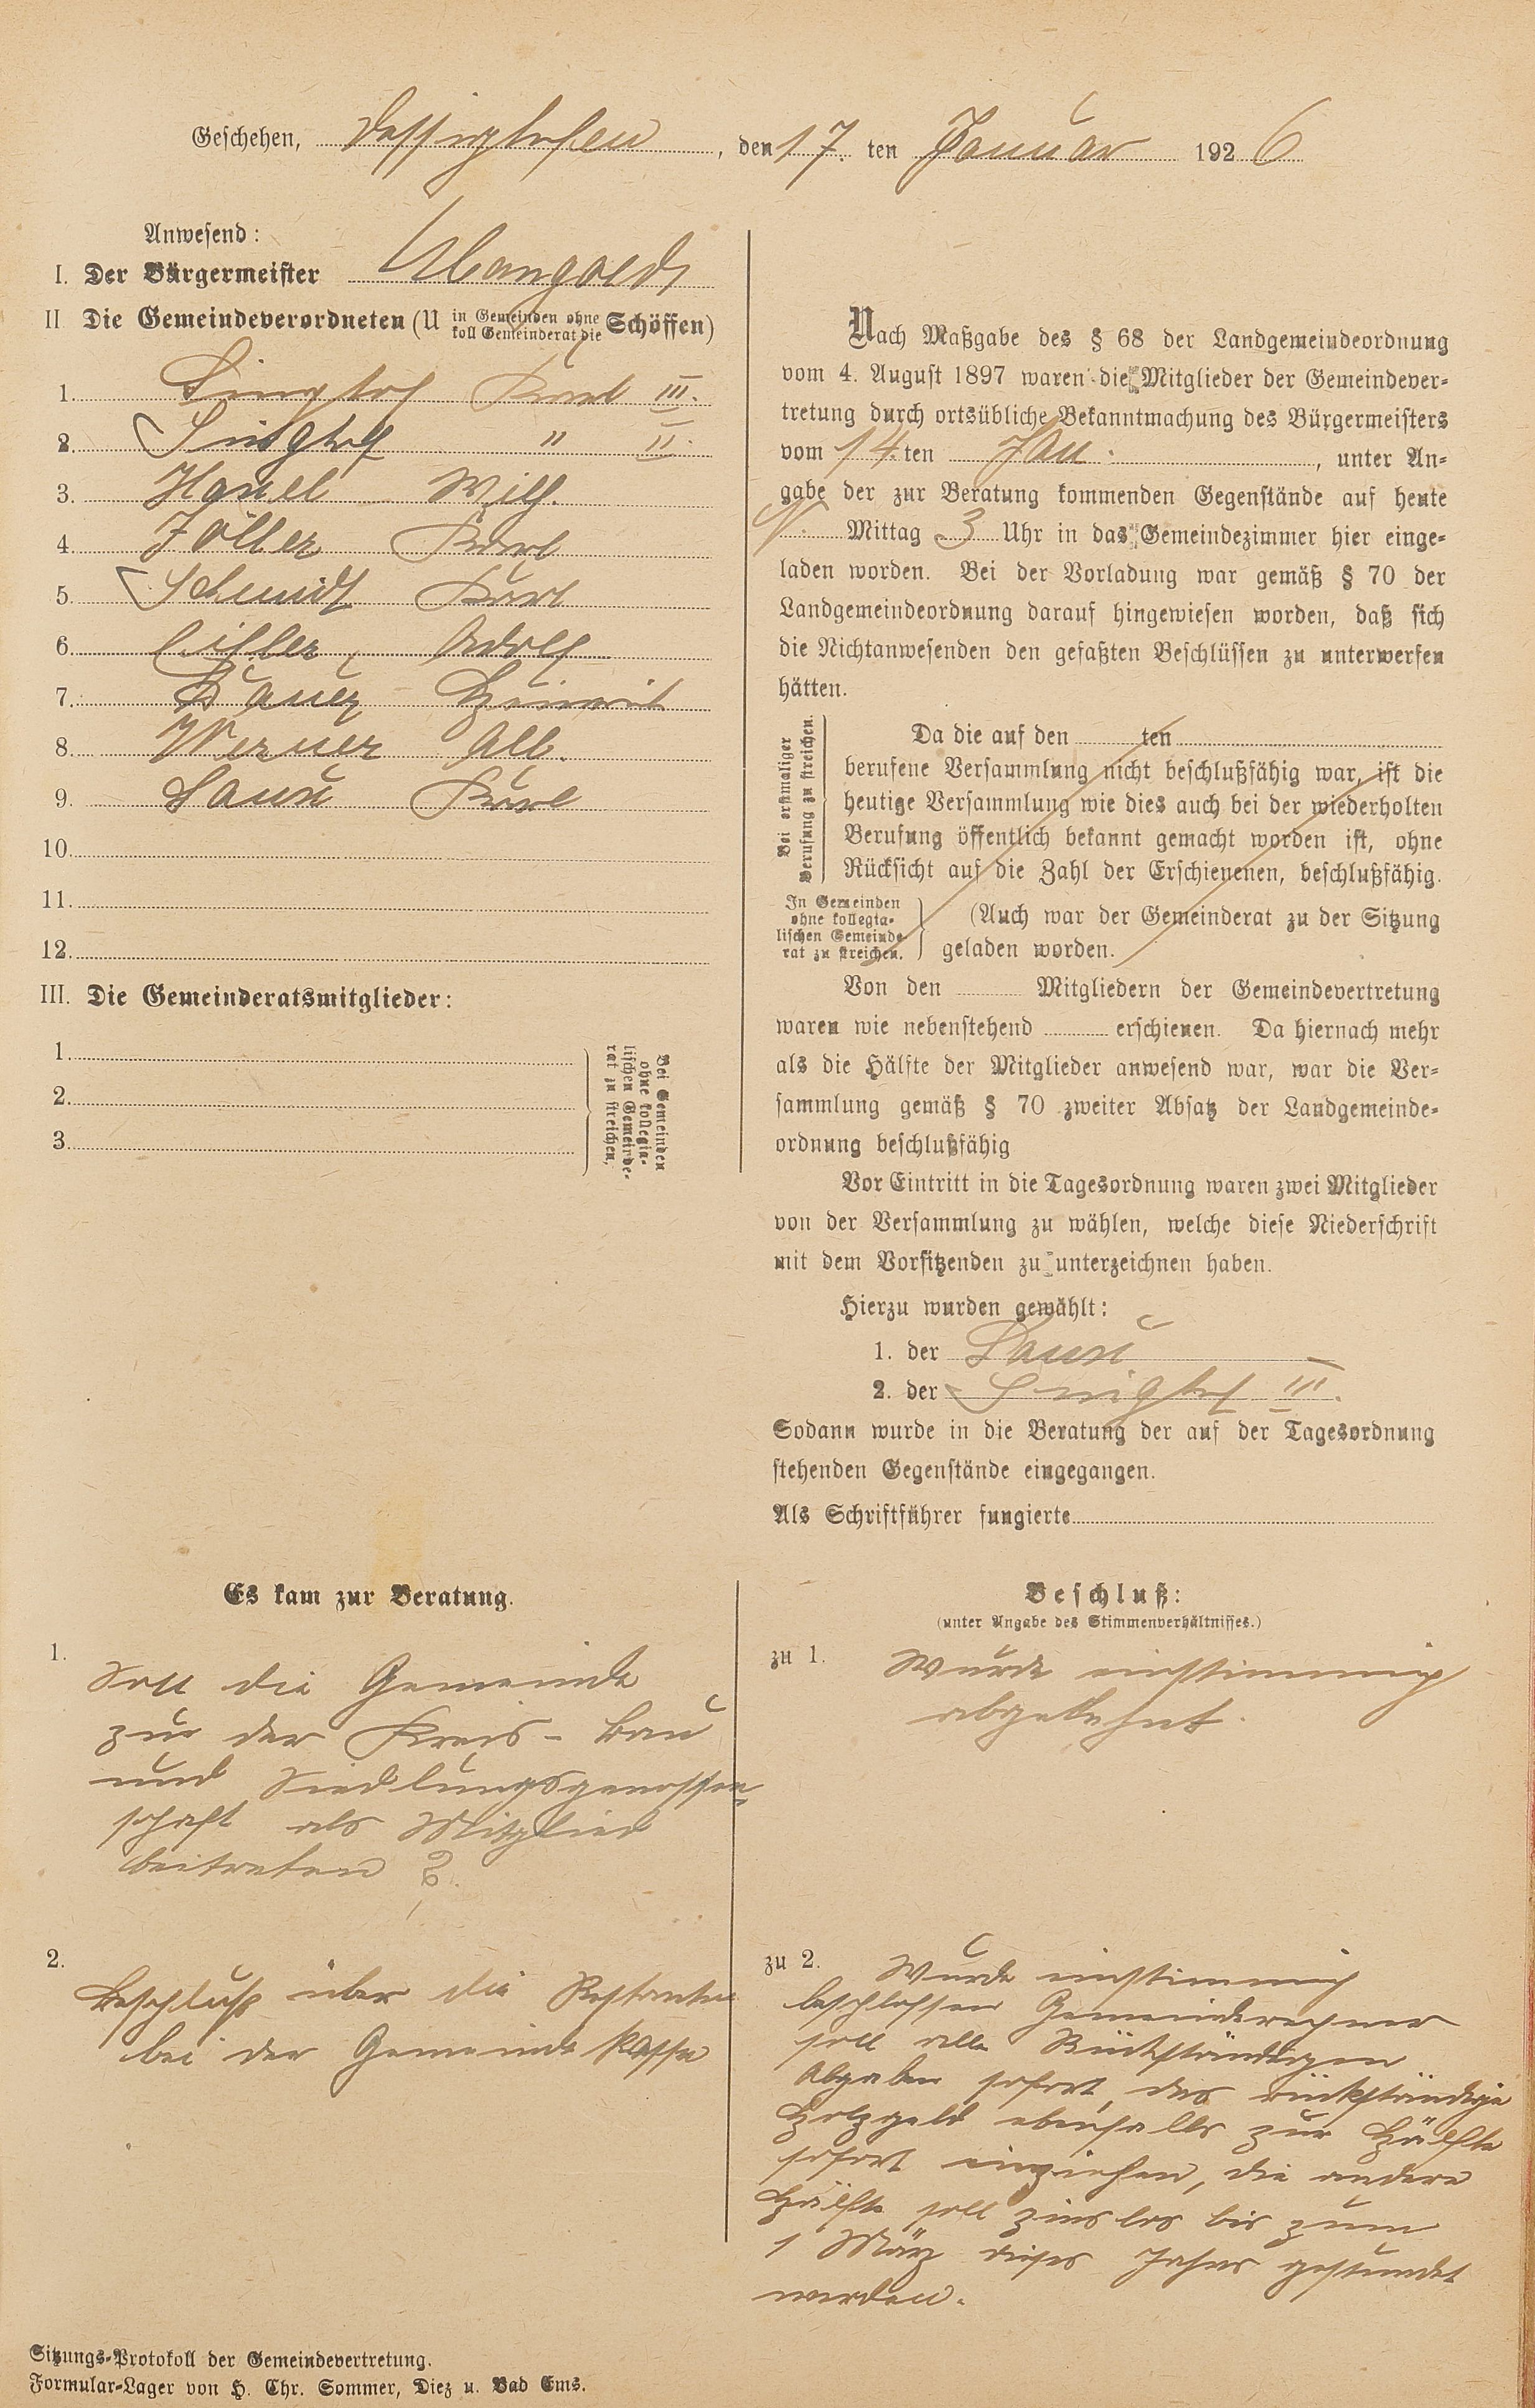 Geschehen, Dessighofen, den 17. ten Januar 1926
Anwesend:
I. Der Bürgermeister Mangold
II Die Gemeindeverordneten (U in Gemeinden ohne koll Gemeinderat die Schöffen)
1. Singhof Karl III.
2. Singhof " II.
3. Wilh.
4. Zöller Karl
5. Schmidt Karl
6. Adolf
7. Bauer Heinrich
8. Werner Alb.
9. Laux Karl
10.
11.
12.
III. Die Gemeinderatsmitglieder:
1.
2.
3.
Bei Gemeinden
ohne kollegia-
lischen Gemeinde-
rat zu streichen.
Nach Maßgabe des § 68 der Landgemeindeordnung
vom 4. August 1897 waren die Mitglieder der Gemeindever-
tretung durch ortsübliche Bekanntmachung des Bürgermeisters
vom 14. ten Jan. , unter An-
gabe der zur Beratung kommenden Gegenstände auf heute
N. Mittag 3 Uhr in das Gemeindezimmer hier einge-
laden worden. Bei der Vorladung war gemäß § 70 der
Landgemeindeordnung darauf hingewiesen worden, daß sich
die Nichtanwesenden den gefaßten Beschlüssen zu unterwerfen
hätten.
Bei erstmaliger
Berufung zu streichen.
Da die auf den ten
berufene Versammlung nicht beschlußfähig war, ist die
heutige Versammlung wie dies auch bei der wiederholten
Berufung öffentlich bekannt gemacht worden ist, ohne
Rücksicht auf die Zahl der Erschienenen, beschlußfähig.
In Gemeinden
ohne kollegia-
lischen Gemeinde-
rat zu streichen.
(Auch war der Gemeinderat zu der Sitzung
geladen worden.
Von den Mitgliedern der Gemeindevertretung
waren wie nebenstehend erschienen. Da hiernach mehr
als die Hälfte der Mitglieder anwesend war, war die Ver-
sammlung gemäß § 70 zweiter Absatz der Landgemeinde-
ordnung beschlußfähig
Vor Eintritt in die Tagesordnung waren zwei Mitglieder
von der Versammlung zu wählen, welche diese Niederschrift
mit dem Vorsitzenden zu unterzeichnen haben.
Hierzu wurden gewählt:
1. der Laux
2. der Singhof III.
Sodann wurde in die Beratung der auf der Tagesordnung
stehenden Gegenstände eingegangen.
Als Schriftführer fungierte
Es kam zur Beratung.
1. Soll die Gemeinde
zur der Kreis-Bau
und Siedlungsgenossen-
schaft als Mitglied
beitreten ?
2. Beschluß über die Restanten
bei der Gemeindekasse
Beschluß:
(unter Angabe des Stimmenverhältnisses.)
zu 1. Wurde einstimmig
abgelehnt.
zu 2. Wurde einstimmig
beschlossen Gemeinderechner
soll alle Rückständigen
Abgaben sofort, das rückständige
Holzgeld ebenfalls zur Hälfte
sofort einziehen, die andere
Hälfte soll zinslos bis zum
1 März dieses Jahres gestundet
werden.
Sitzungs-Protokoll der Gemeindevertretung.
Formular-Lager von H. Chr. Sommer, Diez u. Bad Ems.